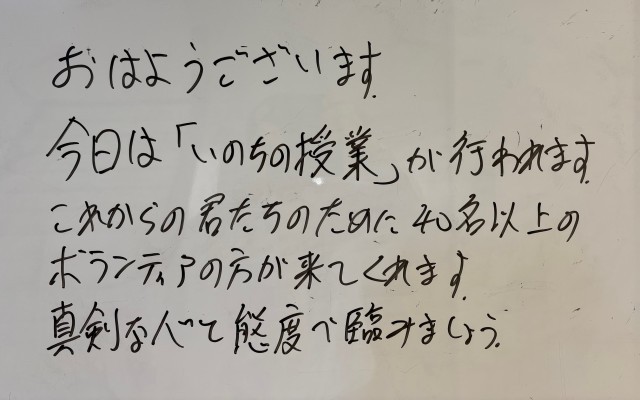 おはようございます.
今日は「いのちの授業」が行われます.
これからの君たちのために40名以上の
ボランティアの方が来てくれます.
真剣な心と態度で臨みましょう.